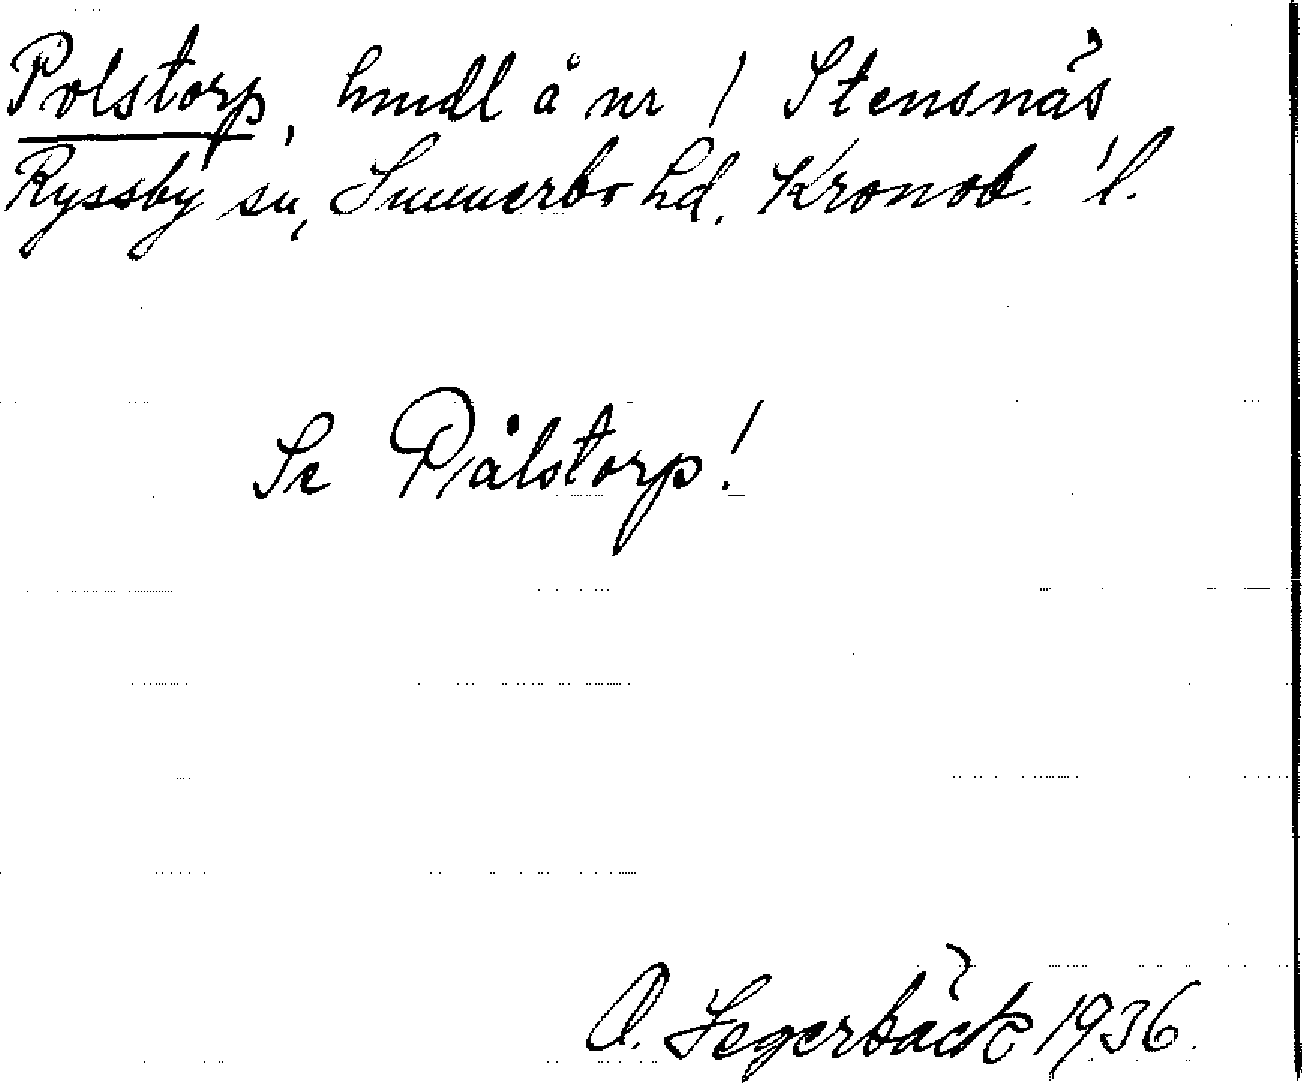 Polstorp, hmdl å nr 1 Stensnäs
Ryssby sn, Sunnerbo hd. Kronob. l.
Se Pålstorp!
O. Segerbäck 1936.